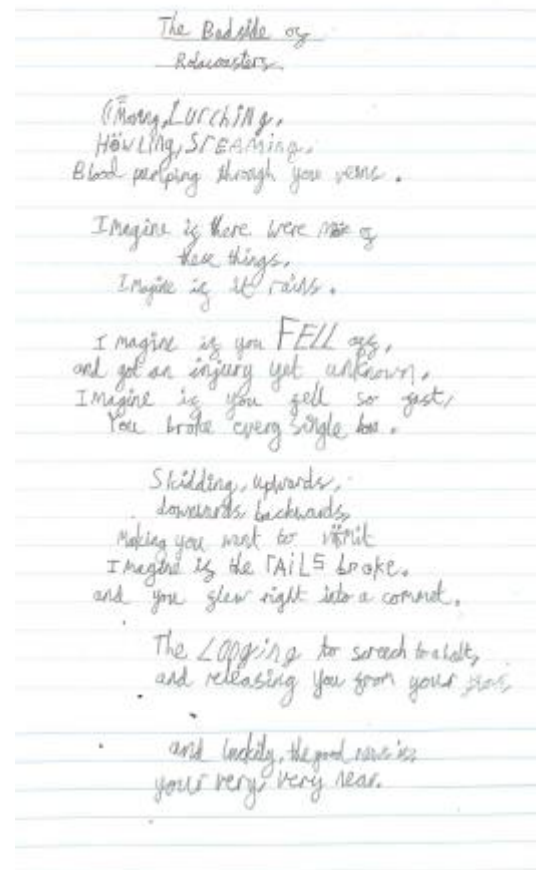 The Badside of
Rolacoasters
Lurching,
HöwLing, SCREAMing,
Blood pumping through you veins.
Imagine if there were more of
these things,
Imagine if it rains.
I magine if you FELL off,
and got an injury yet unknown,
Imagine if you fell so fast,
You broke every single
Skidding, upwards,
downwards, backwards,
Making you want to vömit
Imagine if the rAiLS broke,
and you flew right into a commet.
The to screech to a halt,
and releasing you from your
and luckily, the good news is:
your very, very near.